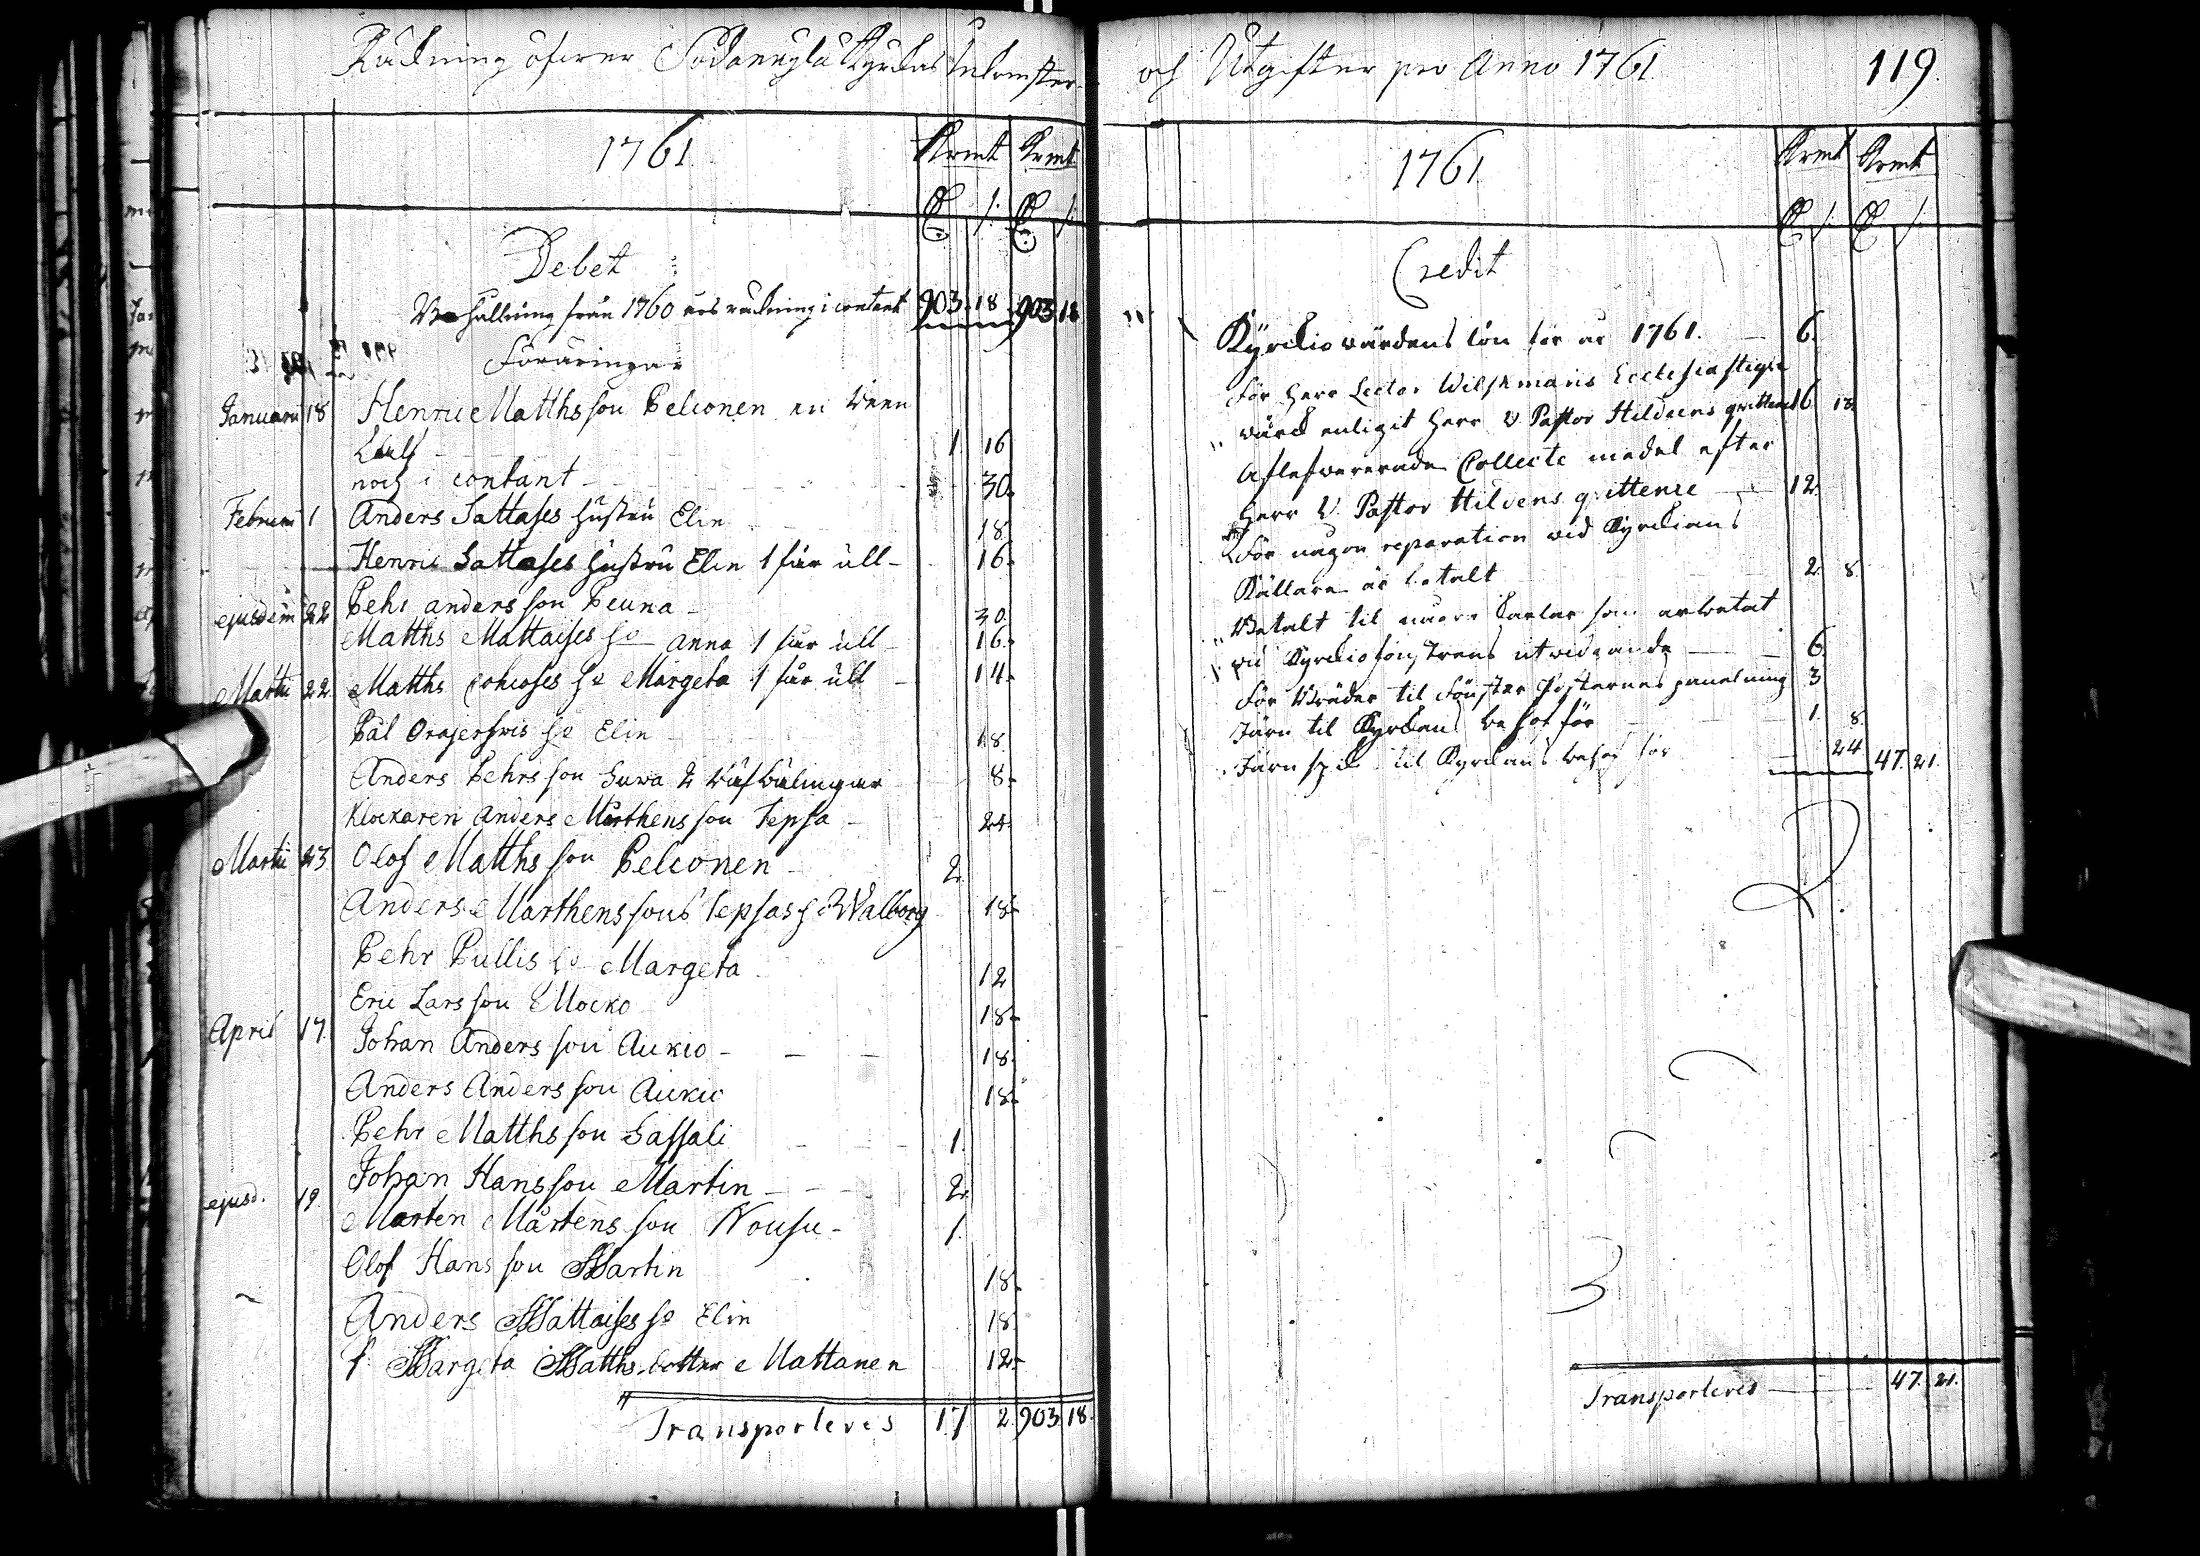 Räckning öfwer Sodankylä Kyrckas Inkomster
1761
Kmt Kmt
Debet
Behållning från 1760 års räckning i contant 903. 18 903 18
Föräringar
Januarii 18 Henric Matthsson Pelconen en Reen
kalf 1. 16
noch i contant 30.
Februarii 1 Anders Sattases hustru Elin 18
Henric Sattases hustru Elin 1 får ull 16.
ejusdem 22 Pehr andersson Peuna 30
Matths Mattaises ho anna 1 får ull 16.
Martii 22. Matths ho Margeta 1 får ull 14.
Pål ho Elin 18.
Anders Pehrsson 2 8.
Klockaren Anders Mårthensson Sepsa 24.
Martii 23. Olof Matthsson Pelconen 2.
Anders Marthenssons Sepsas ho Walborg 18.
Pehr Pullis ho Margeta 12
Eric Larsson Mocko 18.
April 17. Johan Andersson Aikio 18.
Anders Andersson Aikio 18.
Pehr Matthsson Sassali 1.
Johan Hansson Martin 2.
ejusd. 19. Mårten Mårtensson Nousu 1.
Olof Hansson Martin 18.
Anders Mattaises ho Elin 18
Margeta Matthsdotter Mattanen 12.
Transporteres 17 2. 903 18.
och Utgifter pro Anno 1761. 119.
1761
Kmt Kmt
Credit
Kyrckiowärdens lön för år 1761. 6.
För Herr Lector Wilskmans Ecclesiastique
wärck enligit Herr V Pastor Hildéens qvittence 16. 18.
Aflefwererade Collecte medel efter
Herr V. Pastor Hildens qvittence 12.
För någon reparation wid Kyrckians
Källare är betalt 2. 8.
Betalt til några karlar som arbetat
wid Kyrckiofönstrens utwidgande 6.
För Bräder til Fönster Posternes panelning 3
Järn til Kyrckans behof för 1. 8.
Järnspik til Kyrckans behof för 24 47. 21.
Transporteres 47. 21.